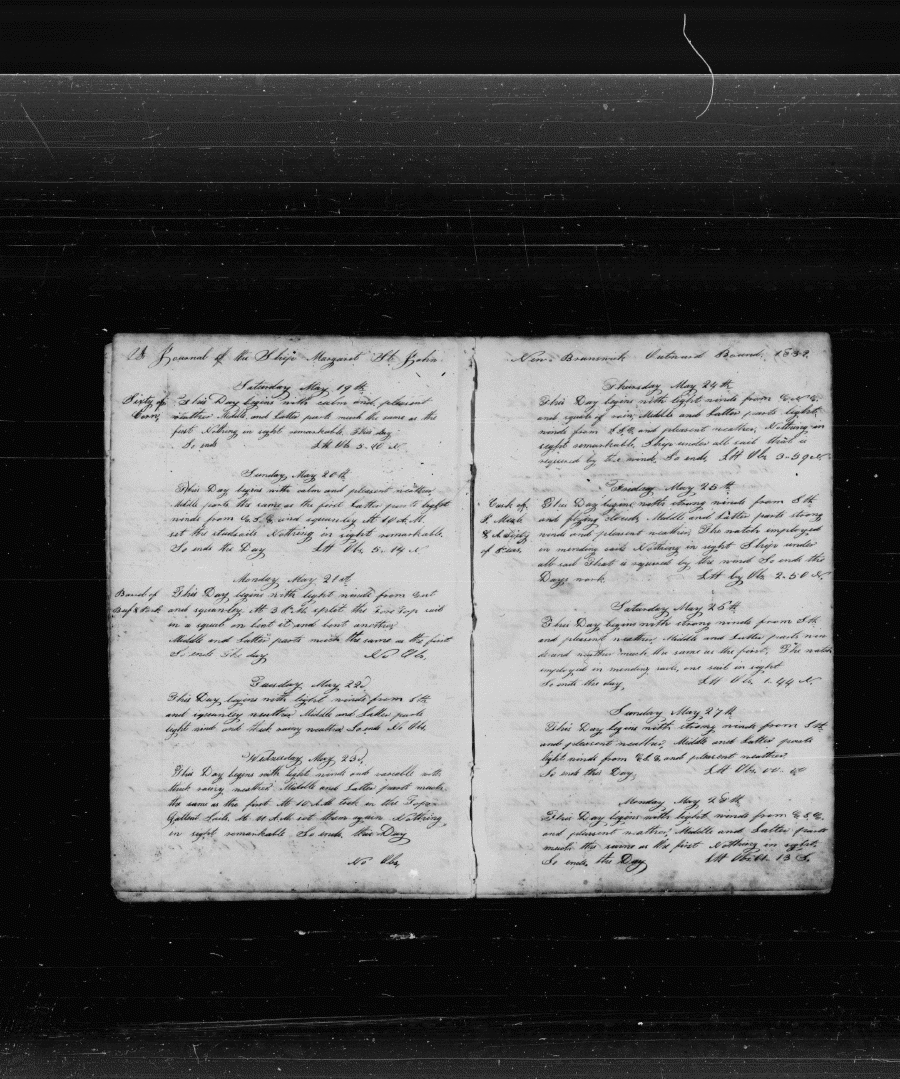 Journal of the Ship Margaret St John
Saturday May 19th
This Day begins with calm and pleasent
weather Middle and Latter parts much the same as the
first Nothing in sight remarkable This day
So ends Lat Obs 5-40 N
Sunday May 20th
This Day begins with calm and pleasent weather
Middle parts the same as the first Latter parts light
winds from and squanley At 10 A.M.
set the studsails Nothing in sight remarkable
So ends the Day Lat Obs 5-14 N
Barrel of
Beef & Pork
Monday May 21st
This Day begins with light winds from East
and squanley At 3 P.M. split the Fore Top sail
in a squal on bent it and bent another
Middle and Latter parts much the same as the first
So ends the day No Obs
Tuesday May 22d
This Day begins with light winds from Sth
and squanley weather Middle and Latter parts
light wind and thick rainy weather So ends No Obs
Wednesday May 23d
This Day begins with light winds and variable with
thick rainy weather Middle and Latter parts much
the same as the first At 10 A.M took in the Topn
Gallant Sails At 11 A.M set them again Nothing
in sight remarkable So ends this Day
No Obs
New Brunswick Outward Bound, 1838
Thursday May 24th
This Day begins with light winds from
and squals of rain, Middle and Latter parts light
winds from and pleasent weather, Nothing in
sight remarkable Ship under all sail that is
required by the wind. So ends Lat Obs 3-59 N
Friday May 25th
This Day begins with strong winds from Sth
and flying clouds, Middle and Latter parts strong
winds and pleasent weather, The watch employed
in mending sails Nothing in sight Ship under
all sail that is required by the wind So ends this
Days work Lat by Obs 2-50 N
Saturday May 26th
This Day begins with strong winds from Sth
and pleasent weather, Middle and Latter parts win
ds and weather much the same as the first, The watch
employed in mending sails, one sail in sight
So ends this day, Lat Obs 1-44 N
Sunday May 27th
This Day begins with strong winds from Sth
and pleasent weather, Middle and Latter parts
light winds from and pleasent weather
So ends this Day, Lat Obs 00-
Monday May 28th
This Day begins with light winds from
and pleasent wather, Middle and Latter parts
much the same as the first Nothing in sight,
So ends this Day Lat Obs 13 S